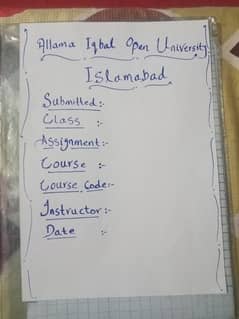 Allama Iqbal Open University
Islamabad
Submitted:-
Class :-
Assignment:-
Course :-
Course Code:-
Instructor:-
Date :-